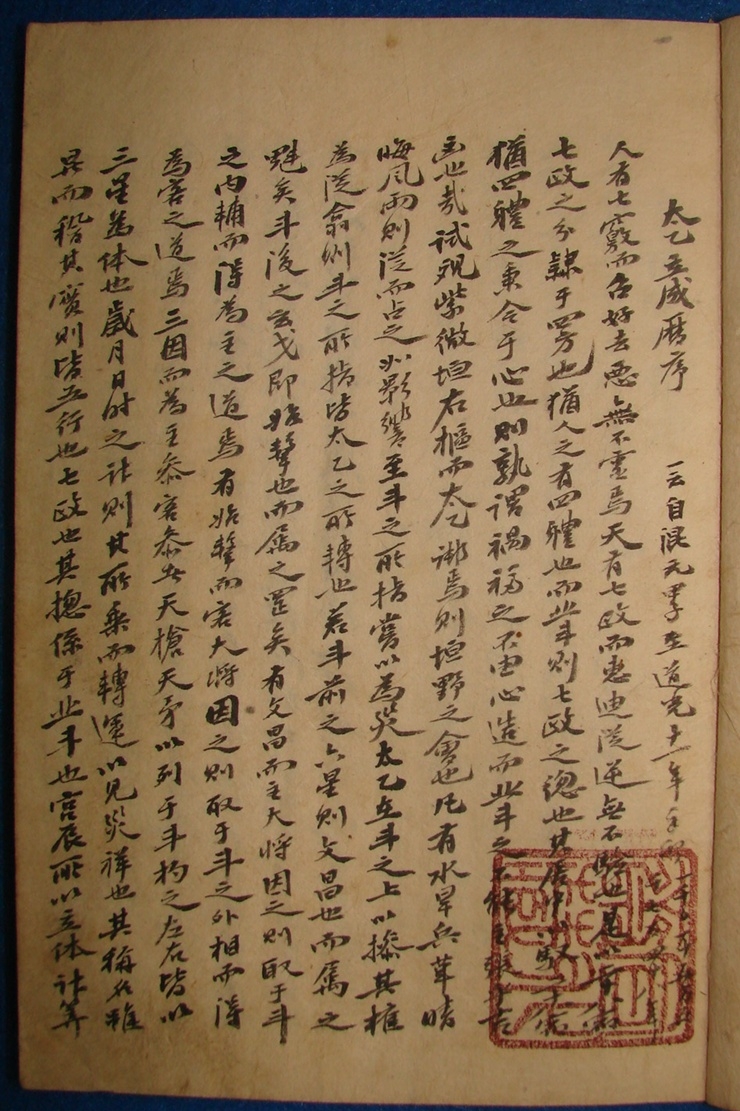 太乙立成曆序 一云自混元甲至道光十一年
人有七竅而召好去惡無不靈焉天有七政而惠迪從逆無不驗也是以
七政之分隸于四方也猶人之有四體也而北斗則七政之總也其居中
猶四體之秉令于心也則孰謂禍福之不由心造而北斗之不能主張乎吉
凶也哉試觀紫微垣右樞而太乙諏焉則垣野之會也凡有水旱兵革晴
晦風雨則從而占之如影響至斗之所指嘗以為災太乙在斗之上以操其權
為從翕網斗之所指皆太乙之所轉也若斗前之六星則文昌也而屬之
魁矣斗後之玄戈即始擊也而屬之罡矣有文昌而主大將因之則取于斗
之內輔而得為主之道焉有始擊而客大將因之則取于斗之外相而得
為客之道焉三因而為主參客參者天槍天矛以列于斗杓之左右皆以
三星為体也歲月日時之計則其所乘而轉運以見災祥也其稱名雖
異而稽其實則皆五行也七政也其摠係于北斗也宮辰所以立体計算